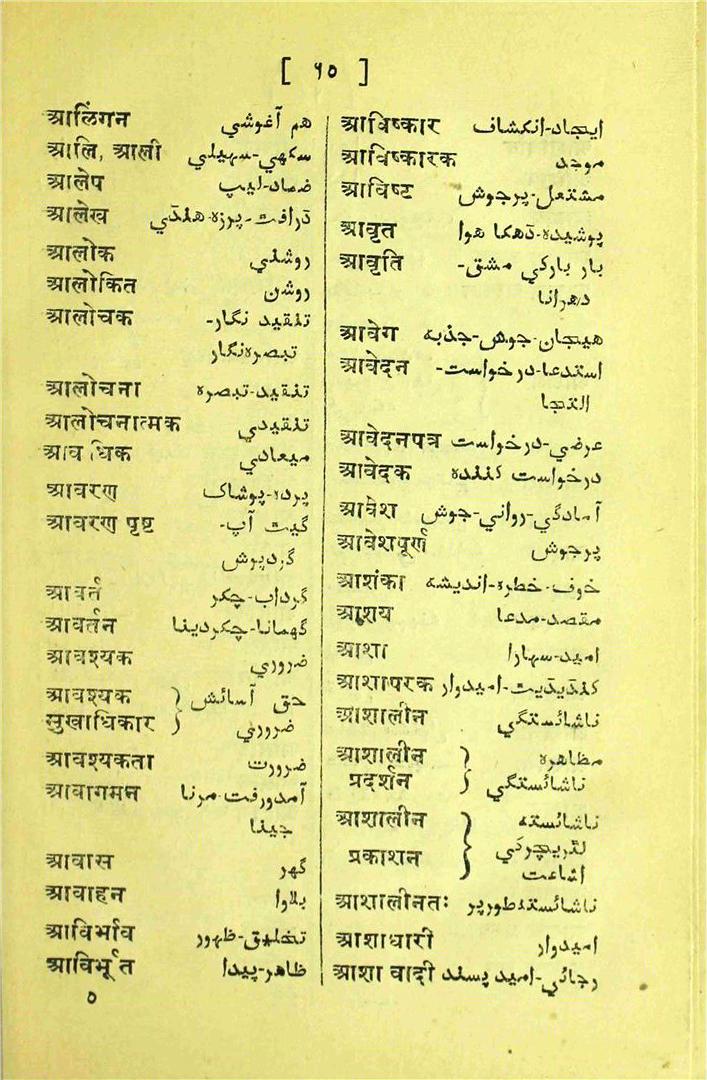 [ ٦٥ ]
आलिंगन هم آغوشي
आलि, आली سکھي-سہیلي
आलेप ضماد-لیپ
आलेख ڈرافت-پرزہ-هنڈي
आलोक روشني
आलोकित روشن
आलोचक تنقید نگار-
تبصرہ نگار
आलोचना تنقید-تبصرہ
आलोचनात्मक تنقیدي
आवधिक میعادي
आवरण پردہ-پوشاک
आवरण पृष्ट گیت آپ-
گردپوش
आवर्त گرداب-چکر
आवर्तन گھمانا-چکردینا
आवश्यक ضروري
आवश्यक } حق آسائش
सुखाधिकार } ضروري
आवश्यकता ضرورت
आवागमन آمدورفت-مرنا
جینا
आवास گھر
आवाहन بلاوا
आविर्भाव تخلیق-ظہور
आविर्भूत ظاهر-پیدا
٥
आविष्कार ایجاد-انکشاف
आविष्कारक موجد
आविष्ट مشتعل-پرجوش
आवृत پوشیدہ-ڈھکا ھوا
आवृति بار بارکي مشق-
دھرانا
आवेग هیجان-جوش-جذبہ
आवेदन استدعا-درخواست-
التجا
आवेदनपत्र عرضي-درخواست
आवेदक درخواست کنندہ
आवेश آمادگي-رواني-جوش
आवेशपूर्ण پرجوش
आशंका خوف-خطرہ-اندیشہ
आशय مقصد-مدعا
आशा امید-سہارا
आशापरक کنڈیڈیت-امیدوار
आशालीन ناشائستگي
आशालीन } مظاهرہ
प्रदर्शन } ناشائستگي
आशालीन } ناشائستہ
لٹریچرکي
प्रकाशन } اشاعت
आशालीनतः ناشائستہ طورپر
आशाधारी امیدوار
आशा वादी رجائي-امید پسند